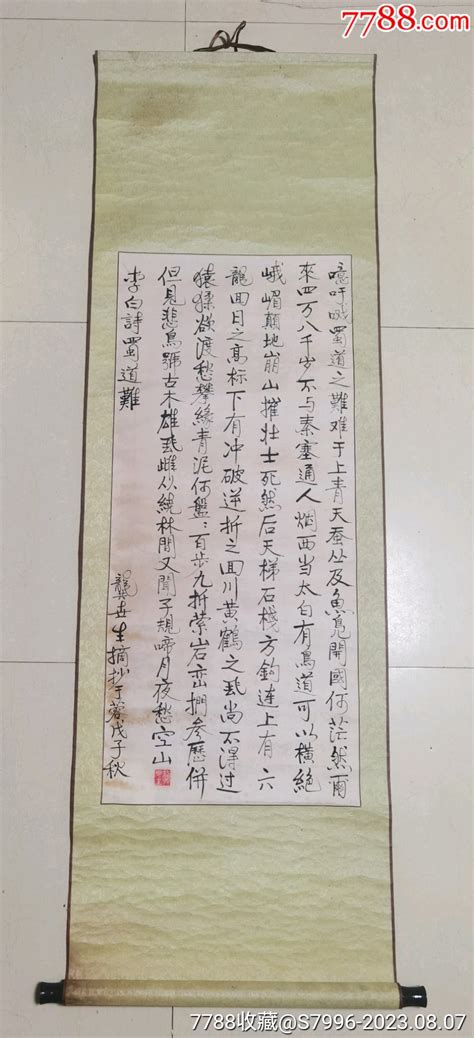 7788.com
中国收藏热线
噫吁哦蜀道之難难于上青天蚕丛及魚鳧開國何茫然爾
來四万八千岁不与秦塞通人烟西当太白有鳥道可以横絶
峨嵋顛地崩山摧壮士死然后天梯石栈方鈎连上有六
龍回日之高标下有冲破逆折之回川黄鹤之飛尚不得过
猿猱欲渡愁攀緣青泥何盤:百步九折萦岩峦捫参歷併
但見悲鳥號古木雄飛雌从繞林間又聞子規啼月夜愁空山
李白詩蜀道難
龔生摘抄于蓉戊子秋
7788收藏@S7996-2023.08.07